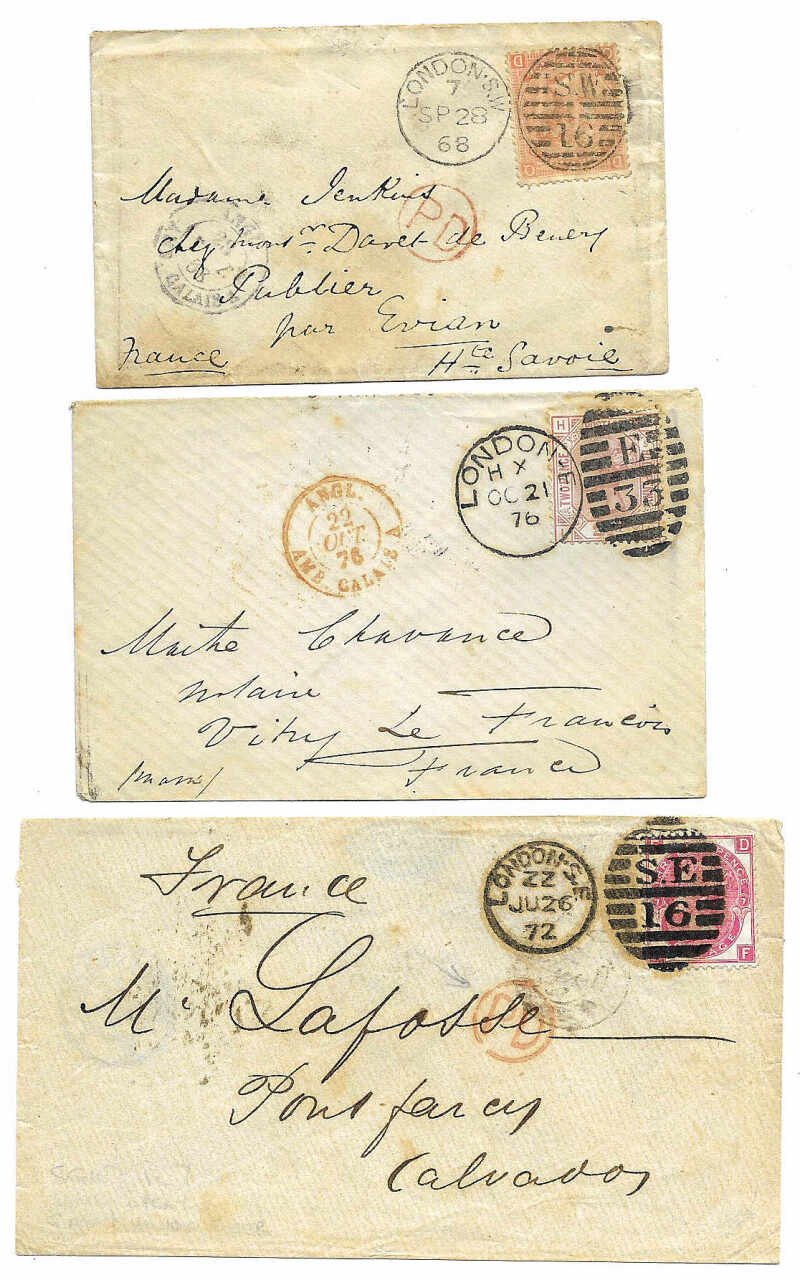 LONDON·S.W
7
SP 28
68
D
S.W.
16
O
D
Madame Jenkins
PD
chez Monsr. Daret de Benery
CALAIS
68
Publier
par Evian
France
Hte Savoie
H
TWO
LONDON E
H X
OC 21
76
E.
33
ANGL.
22
OCT.
76
AMB. CALAIS A
Maitre Chavance
Notaire
Vitry Le Francois
(Marne)
France
France
LONDON·S.E
ZZ
JU 26
72
D
S.E.
16
PENCE
F
Mr Lafosse
PD
Pont farcy
Calvados